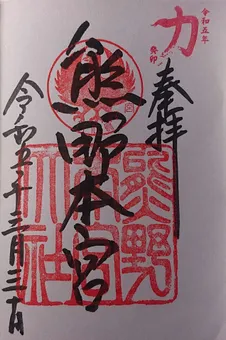 令和五年
癸卯
力
奉拝
熊野本宮
熊野本宮大社
令和五年三月三十日